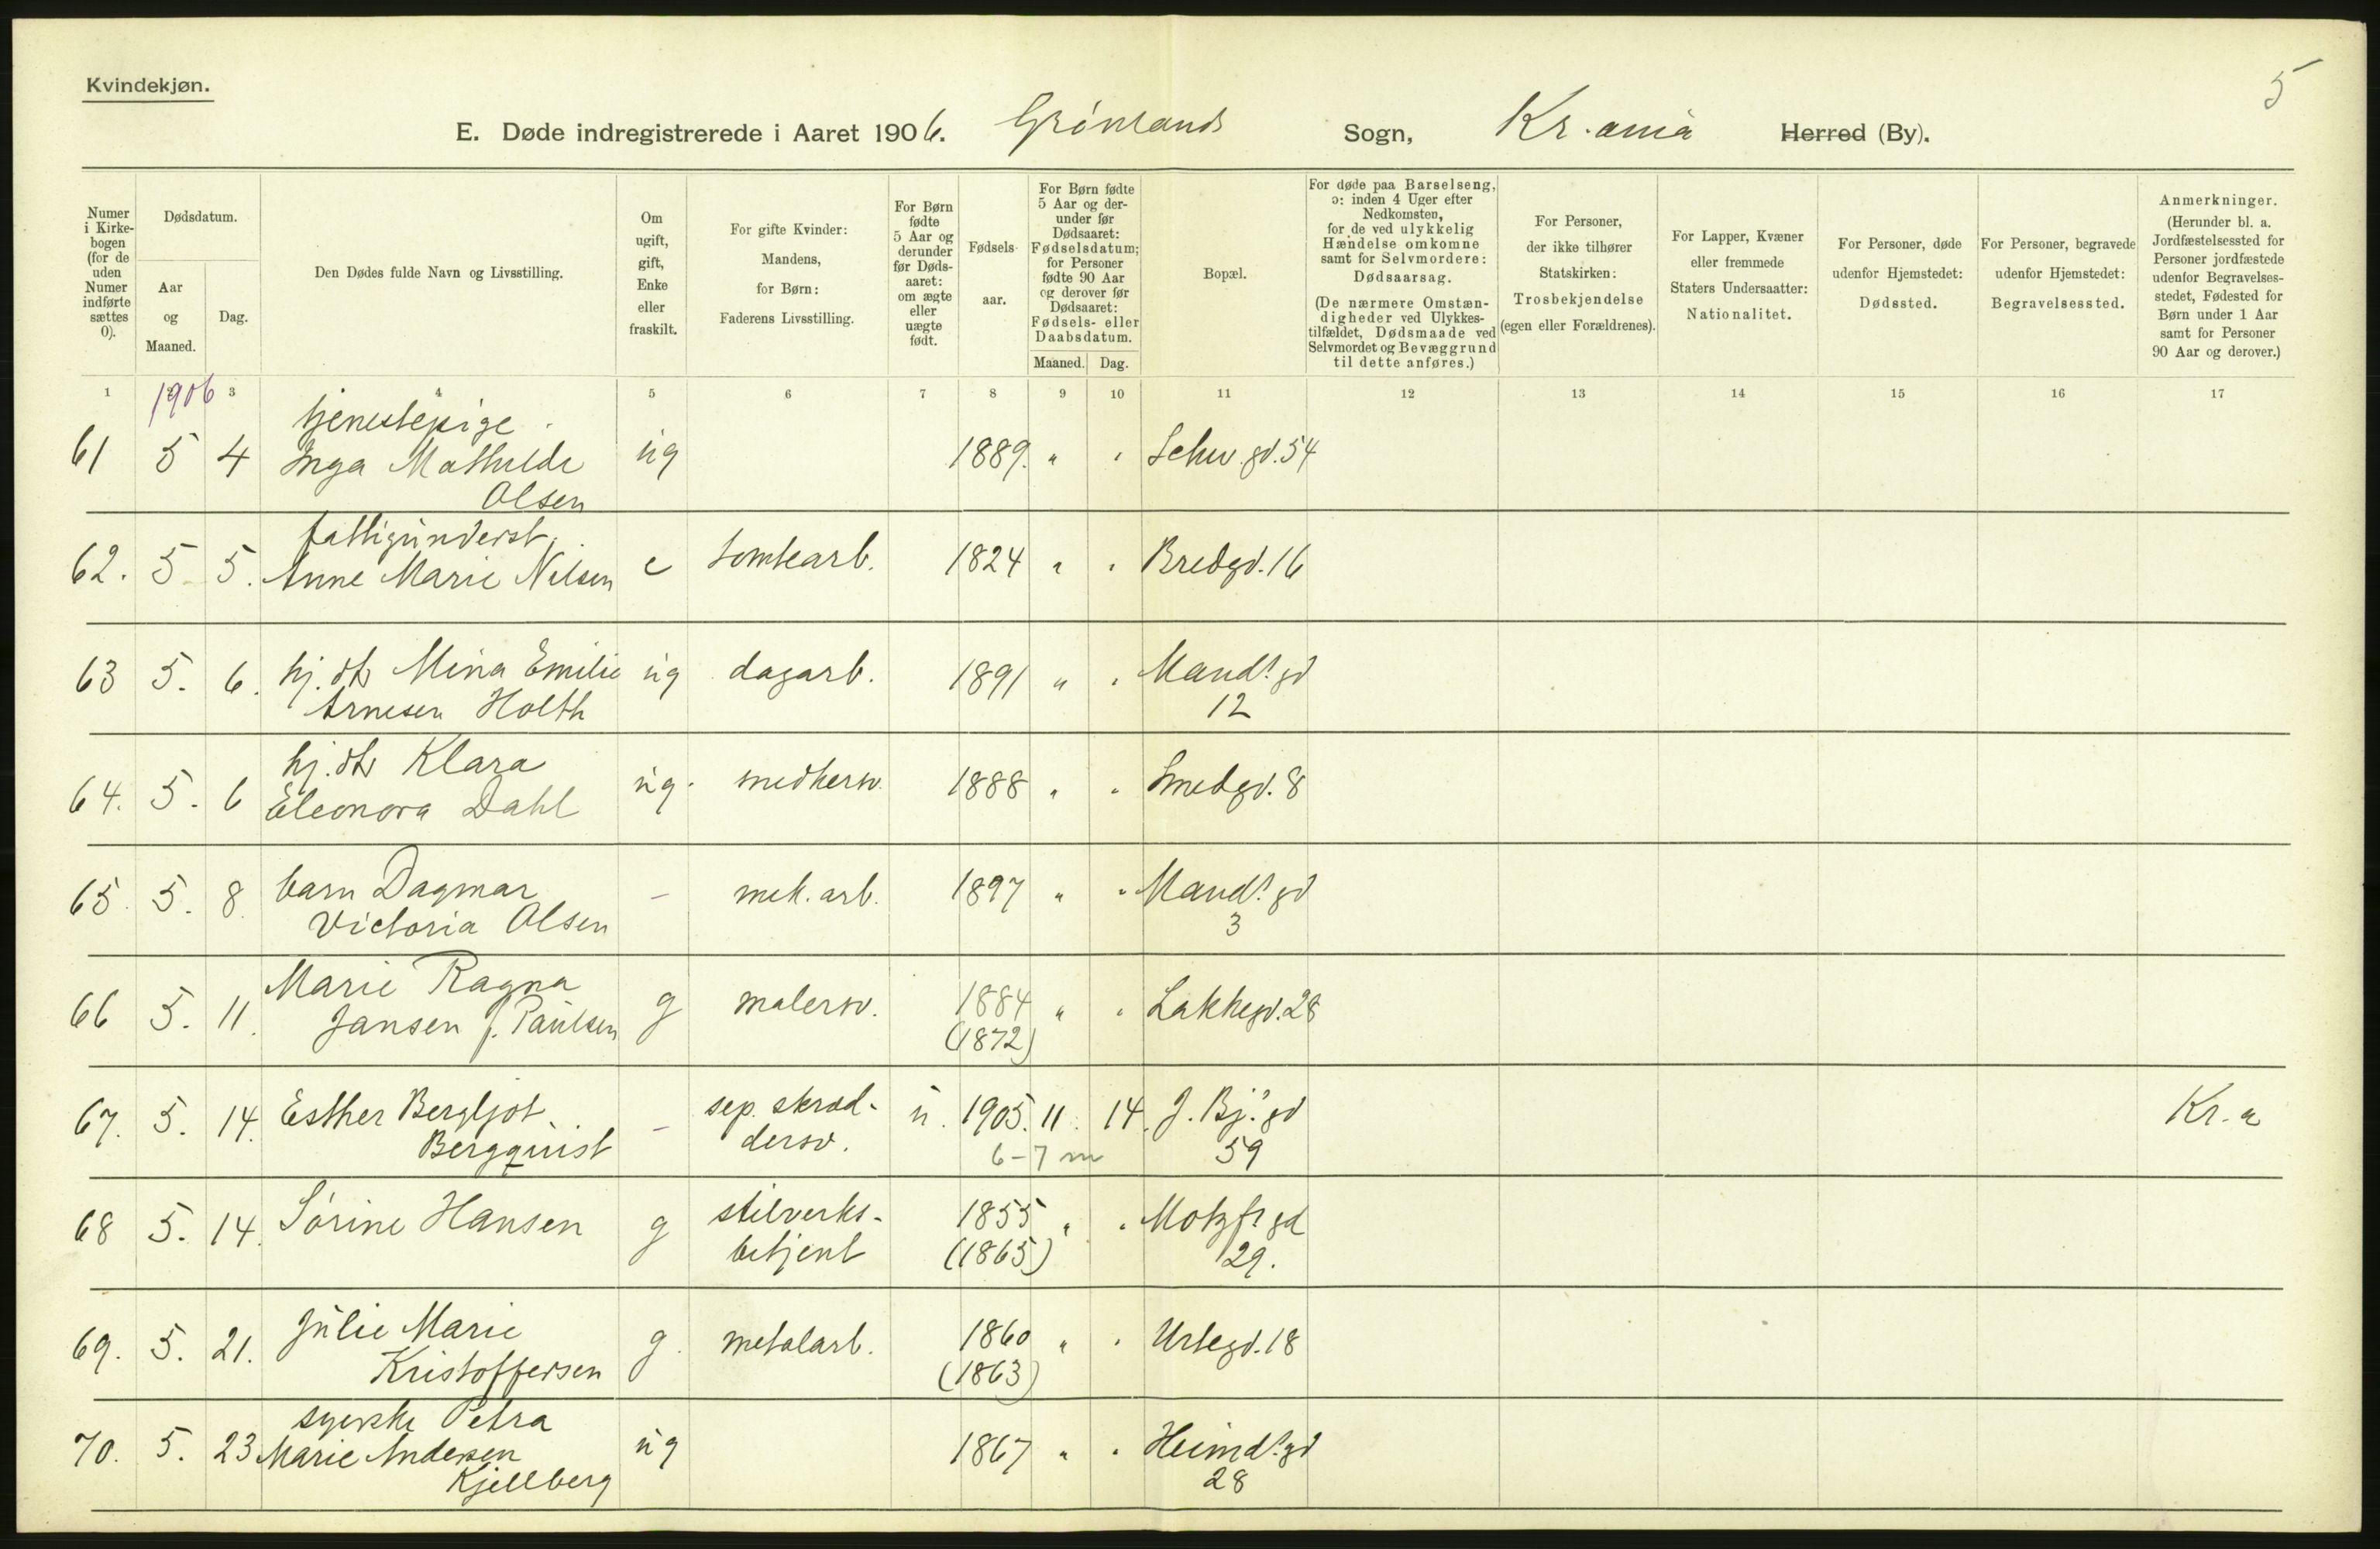 Kvindekjøn.
5
E. Døde indregistrerede i Aaret 1906. Grönlands Sogn, Kr.ania Herred (By).
Numer i Kirkebogen (for de uden Numer indførte sættes 0).
Dødsdatum.
Aar og Maaned.
Dag.
Den Dødes fulde Navn og Livsstilling.
Om ugift, gift, Enke eller fraskilt.
For gifte Kvinder: Mandens, for Børn: Faderens Livsstilling.
For Børn fødte 5 Aar og derunder før Dødsaaret: om ægte eller uægte født.
Fødselsaar.
For Børn fødte 5 Aar og derunder før Dødsaaret: Fødselsdatum; for Personer fødte 90 Aar og derover før Dødsaaret: Fødsels- eller Daabsdatum.
Maaned. Dag.
Bopæl.
For døde paa Barselseng, ɔ: inden 4 Uger efter Nedkomsten, for de ved ulykkelig Hændelse omkomne samt for Selvmordere: Dødsaarsag.
(De nærmere Omstændigheder ved Ulykkestilfældet, Dødsmaade ved Selvmordet og Bevæggrund til dette anføres.)
For Personer, der ikke tilhører Statskirken: Trosbekjendelse (egen eller Forældrenes).
For Lapper, Kvæner eller fremmede Staters Undersaatter: Nationalitet.
For Personer, døde udenfor Hjemstedet: Dødssted.
For Personer, begravede udenfor Hjemstedet: Begravelsessted.
Anmerkninger.
(Herunder bl. a. Jordfæstelsessted for Personer jordfæstede udenfor Begravelsesstedet, Fødested for Børn under 1 Aar samt for Personer 90 Aar og derover.)
1 2 3 4 5 6 7 8 9 10 11 12 13 14 15 16 17
1906
tjenestepige
61 5 4 Inga Mathilde ug 1889. " " Schw.gd.54
Olsen
fattigunderst.
62. 5 5. Anne Marie Nilsen e tomtearb. 1824 " " Bredgd.16
63 5. 6. hj. dtr Mina Emilie ug dagarb. 1891 " " Mand.s gd
Arnesen Holth 12
hj. dtr Klara
64. 5. 6 Eleonora Dahl ug. snedkersv. 1888 " " Smedgd.8
65. 5. 8. barn Dagmar - mek. arb. 1897 " " Mand.s gd
Victoria Olsen 3
Marie Ragna
66 5. 11. Jansen f. Paulsen g malersv. 1884 " " Lakkegd.28
(1872)
67. 5. 14. Esther Bergljot - sep. skræd- u. 1905. 11. 14. J. Bj.s gd Kr.a
Bergquist dersv. 6-7 m 59
68 5. 14. Sörine Hansen g stilverks- 1855 " " Motzf.s gd
betjent (1865) 29.
69. 5. 21. Julie Marie g. metalarb. 1860 " " Urtegd.18
Kristoffersen (1863)
syerske Petra
70. 5. 23 Marie Andersen ug 1867 " " Heimd.s gd
Kjellberg 28